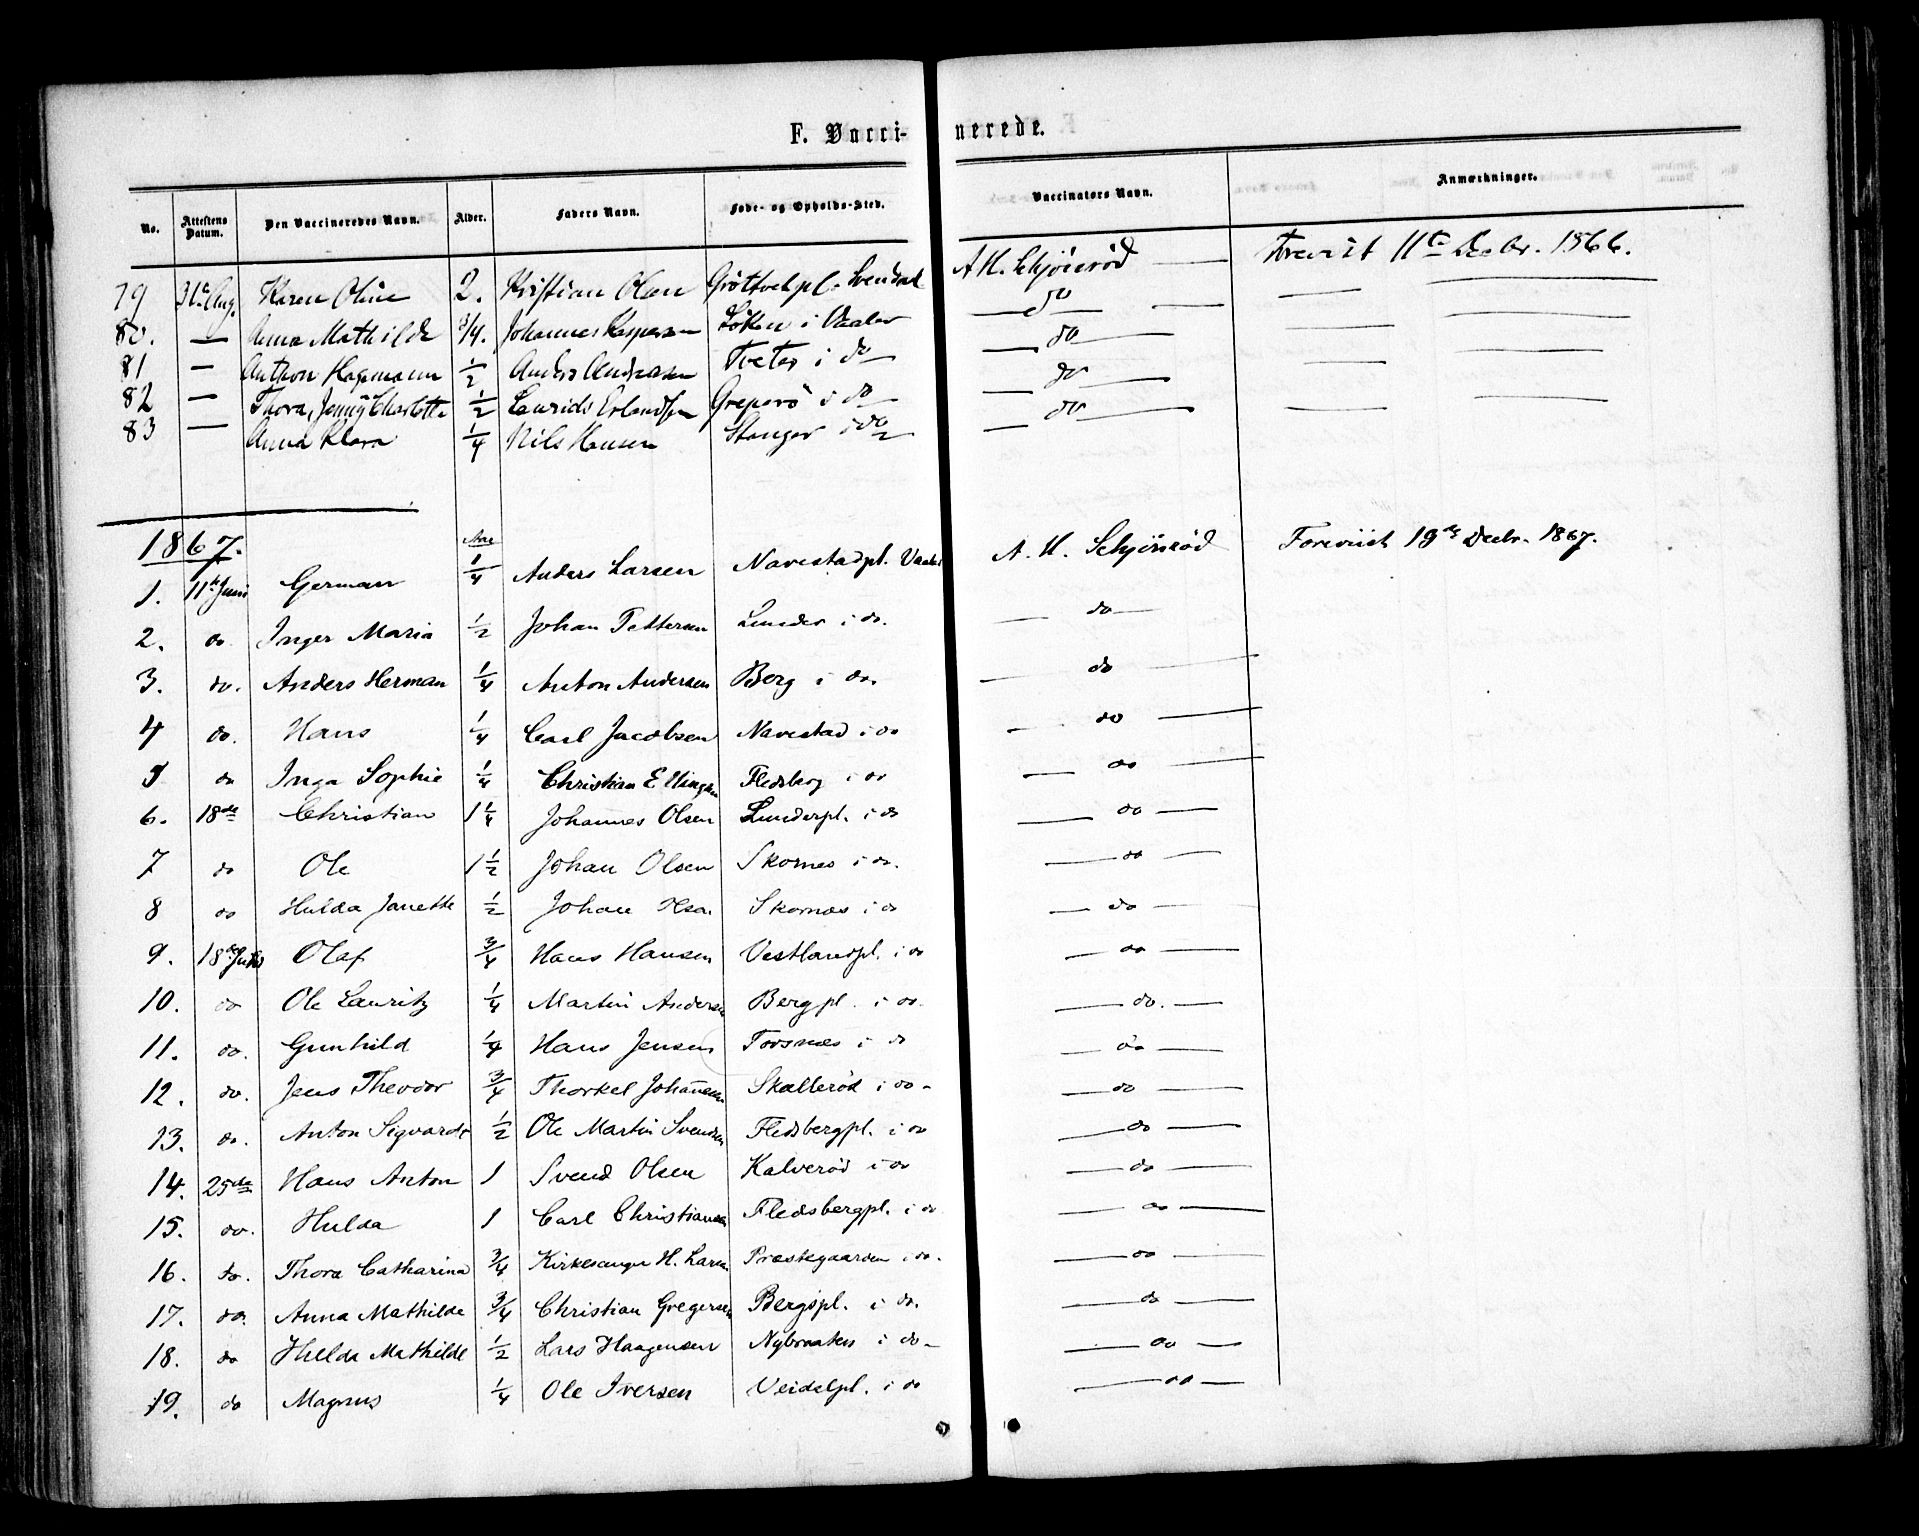 F. Vacci- nerede.
No. Attestens Datum. Den Vaccineredes Navn. Alder. Faders Navn. Føde- og Opholds-Sted. Vaccinators Navn. Anmærkninger.
79 31te Aug. Karen Oline 2. Kristian Olsen Grøttvetpl. Svendal A H. Schjönröd — Forevist 11te Decbr. 1866.
80. — Anna Mathilde 3/4. Johannes Kaspersen Löken i Vaaler — do — — —
81 — Anthon Hagemann 1/2 Anders Andreasen Tveter i do — do — — —
82 — Thora, Jenny Charlotte 1/2 Laurids Erlandsen Greperö i do — do — — —
83 — Anna Klara 1/4 Nils Hansen Stanger i do — do — — —
1867. Aar
1. 11te Juni German 1/4 Anders Larsen Navestadpl. Vaaler A. H. Schjönröd Foreviist 19de Decbr. 1867.
2. do Inger Maria 1/2 Johan Pettersen Lunder i do. — do —
3. do. Anders Herman 1/4 Anton Andersen Berg i do. — do —
4 do. Hans 1/4 Carl Jacobsen Navestad i do — do —
5 do Inga Sophie 1/4 Christian Ellingsen Fledsberg i do — do —
6. 18de Christian 1 1/4 Johannes Olsen Lunderpl. i do — do —
7 do Ole 1 1/2 Johan Olsen Skornes i do. — do —
8 do Hulda Janette 1/2 Johan Olsen Skornæs i do — do —
9. 18de Julis Olaf 3/4 Hans Hansen Vestlandpl. i do — do —
10. do Ole Lauritz 1/4 Martin Andersen Bergpl. i do. — do. —
11. do. Gunhild 1/4 Hans Jensen Torsnæs i do — do —
12. do. Jens Theodor 3/4 Thorkel Johannesen Skallerød i do — do —
13. do. Anton Sigvardt 1/2 Ole Martin Svendsen Fledsbergpl. i do — do —
14. 25de Hans Anton 1 Svend Olsen Kalverød i do — do —
15. do. Hulda 1 Carl Christiansen Fledsbergpl. i do — do —
16. do. Thora Catharina 3/4 Kirkesanger H. Larsen Præstegaarden i do. — do —
17. do. Anna Mathilde 3/4 Christian Gregersen Bergspl. i do. — do —
18. do Hulda Mathilde 1/2 Lars Haagensen Nybraaten i do — do —
19. do Magnus 1/4 Ole Iversen Veidelpl. i do — do —